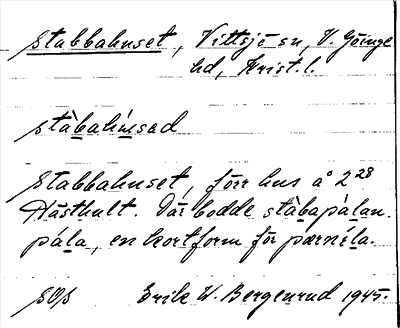 Stabbahuset, Vittsjö sn, V. Göinge
hd, Krist. l.
stàbahúsad
Stabbahuset, förr hus å 2 28
Hästhult. Där bodde stàbapàlan.
pála, en kortform för pærníla.
SOS Erik W. Bergenrud 1945.